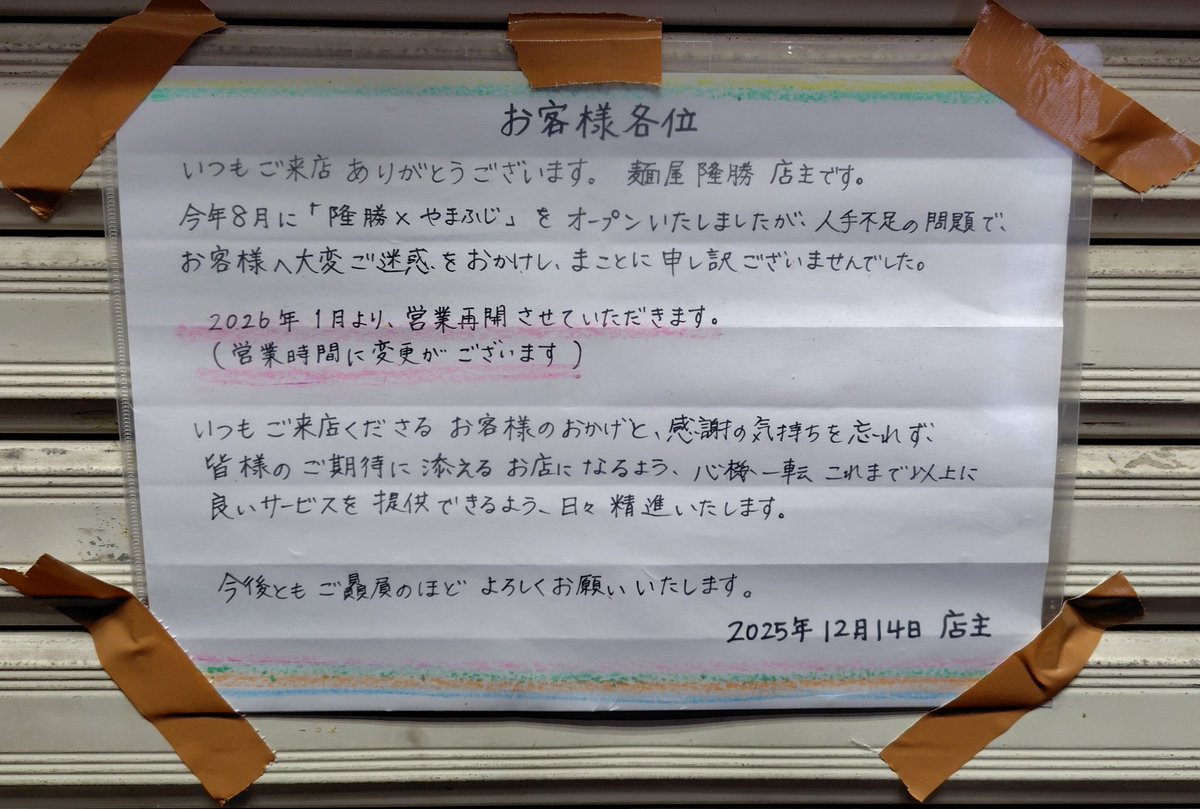 お客様各位
いつもご来店ありがとうございます。麺屋隆勝店主です。
今年8月に「隆勝×やまふじ」をオープンいたしましたが、人手不足の問題で、
お客様へ大変ご迷惑をおかけし、まことに申し訳ございませんでした。
2026年1月より、営業再開させていただきます。
(営業時間に変更がございます)
いつもご来店くださるお客様のおかげと、感謝の気持ちを忘れず、
皆様のご期待に添えるお店になるよう、心機一転これまで以上に
良いサービスを提供できるよう、日々精進いたします。
今後ともご贔屓のほどよろしくお願いいたします。
2025年12月14日 店主